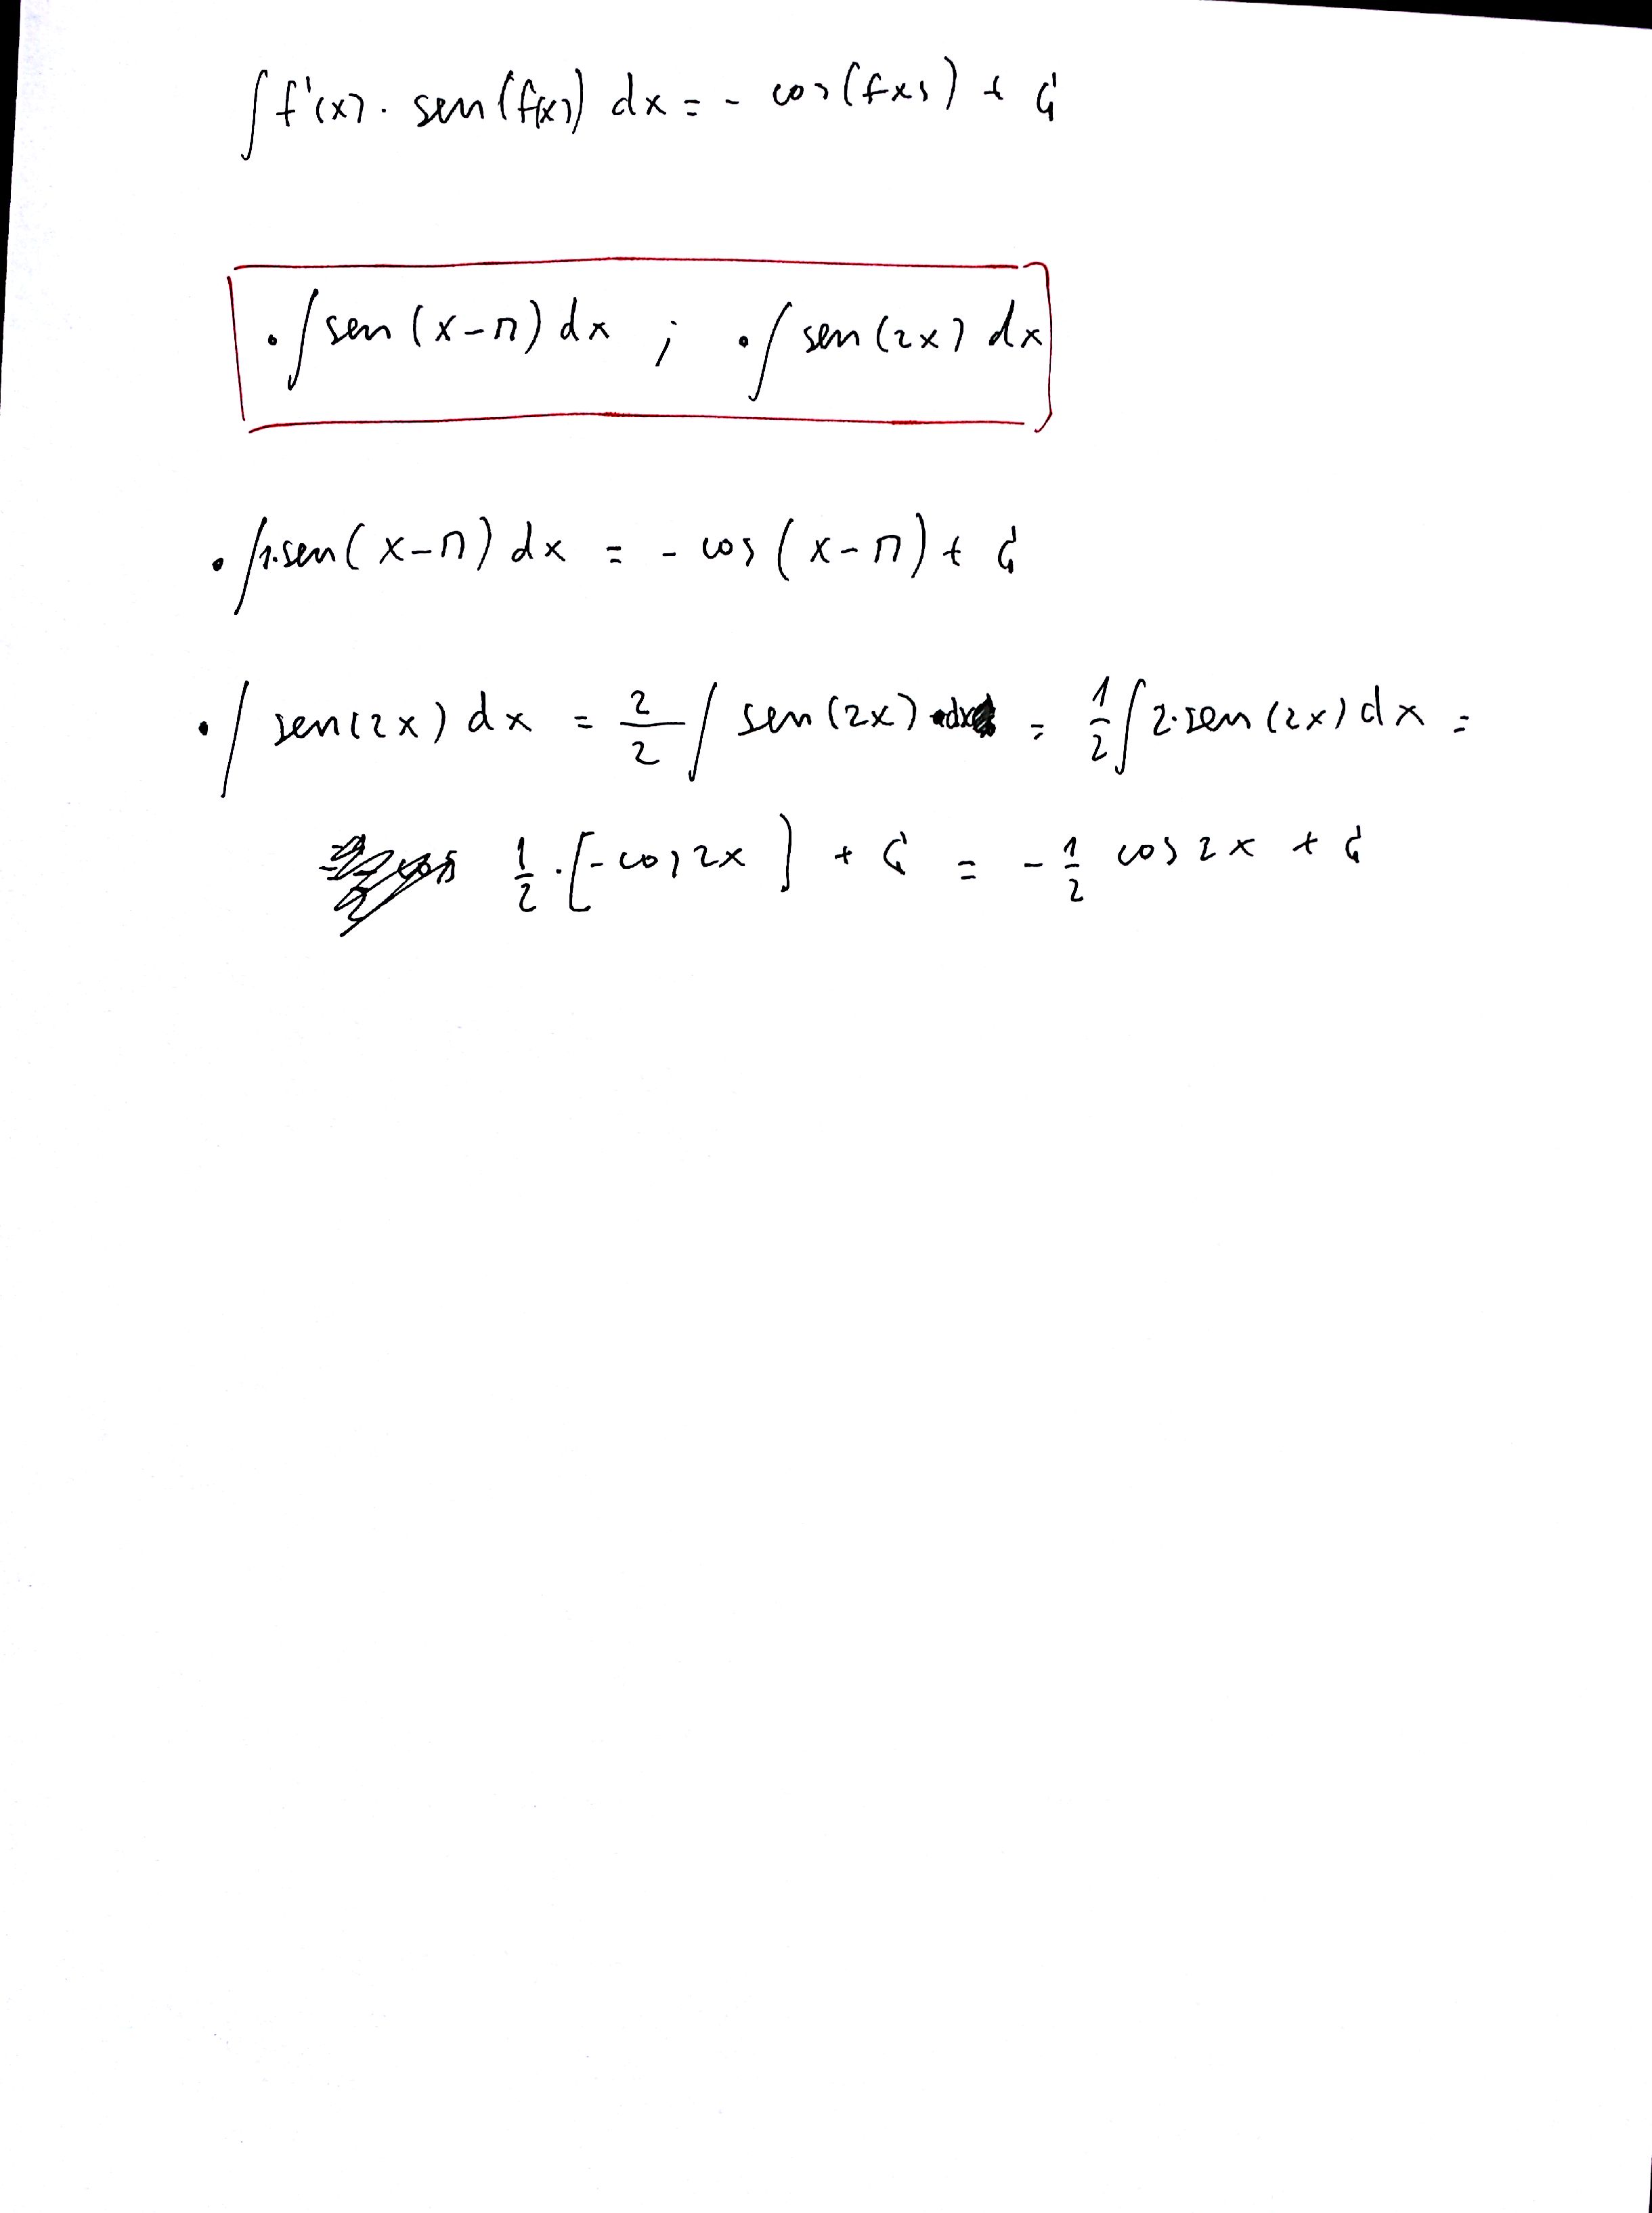 ∫ f'(x) · sen(f(x)) dx = - cos(f(x)) + C
· ∫ sen (x-π) dx ; · ∫ sen (2x) dx
· ∫ 1·sen (x-π) dx = - cos (x-π) + C
· ∫ sen(2x) dx = 2/2 ∫ sen (2x) dx = 1/2 ∫ 2·sen (2x) dx =
1/2 · [-cos 2x] + C = - 1/2 cos 2x + C